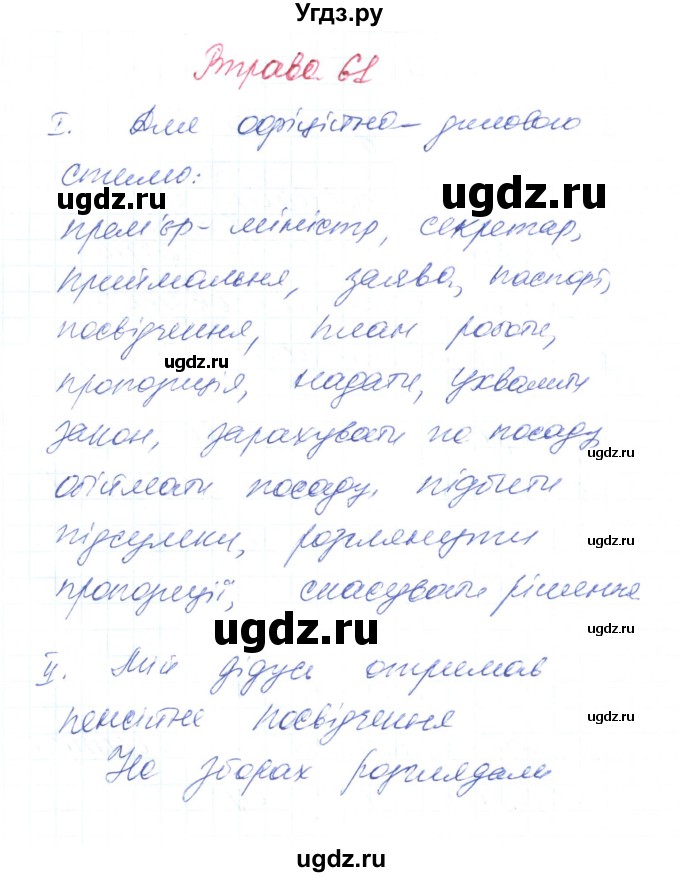 Угдз.ру
Вправа 61
I. Для офіційно-ділового
стилю:
ugdz.ru
ugdz.ru
прем'єр-міністр, секретар,
приймальня, заява, паспорт,
посвідчення, план роботи,
ugdz.ru
пропозиція, надати, ухвалити
закон, зарахувати на посаду,
ugdz.ru
обіймати посаду, підбити
підсумки, розглянути
ugdz.ru
пропозиції, скасувати рішення
ugdz.ru
ugdz.ru
II. Мій дідусь отримав
пенсійне посвідчення
ugdz.ru
На зборах розглядали
ugdz.ru
ugdz.ru